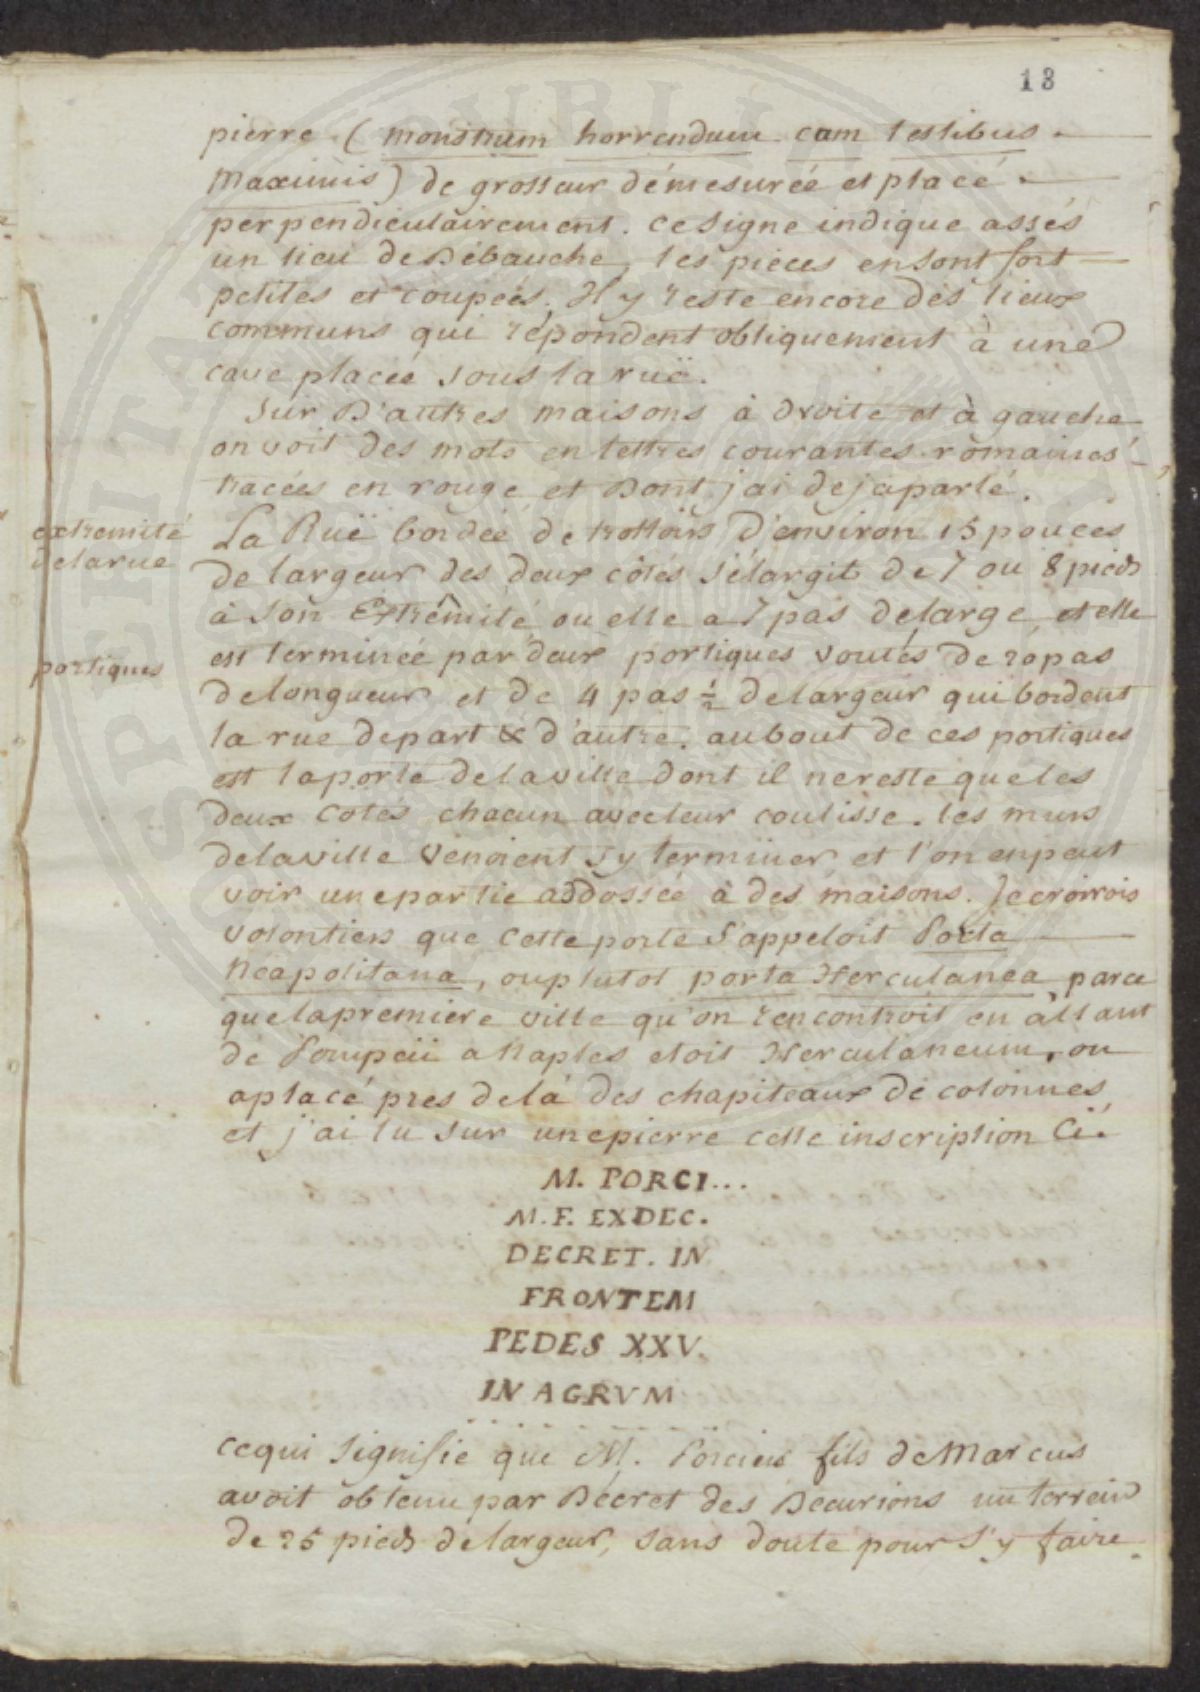 18
pierre (monstrum horrendum cum testibus
Maximis) de grosseur démesurée et placé
perpendiculairement. ce signe indique assés
un lieu de Débauche, les pieces en sont fort
petites et coupées. Il y reste encore des lieux
communs qui répondent obliquement à une
cave placée sous la ruë.
Sur D'autres maisons à droite et à gauche
on voit des mots en lettres courantes romaines
tracées en rouge et Dont j'ai deja parlé.
extremité
de la rue
La Ruë bordée de trottoirs D'environ 15 pouces
de largeur des deux côtés s'élargit de 7 ou 8 pieds
à son Extrêmité, ou elle a 7 pas de large, et elle
portiques
est terminée par deux portiques voutés de 20 pas
de longueur et de 4 pas ½ de largeur qui bordent
la rue de part & d'autre. au bout de ces portiques
est la porte de la ville dont il ne reste que les
deux cotés chacun avec leur coulisse. les murs
de la ville venoient s'y terminer et l'on en peut
voir une partie addossée à des maisons. Je croirois
volontiers que cette porte s'appeloit Porta
Neapolitana, ou plutot porta Herculanea, parce
que la premiere ville qu'on rencontroit en allant
de Pompeii a Naples etoit Herculaneum. on
a placé pres de là des chapiteaux de colonnes
et j'ai lu sur une pierre cette inscription ci.
M. PORCI...
M. F. EX DEC.
DECRET. IN
FRONTEM
PEDES XXV.
IN AGRVM
. . . . . . . . .
ce qui signifie que M. Porcius fils de Marcus
avoit obtenu par Décret des Decurions un terrein
de 25 pieds de largeur, sans doute pour s'y faire